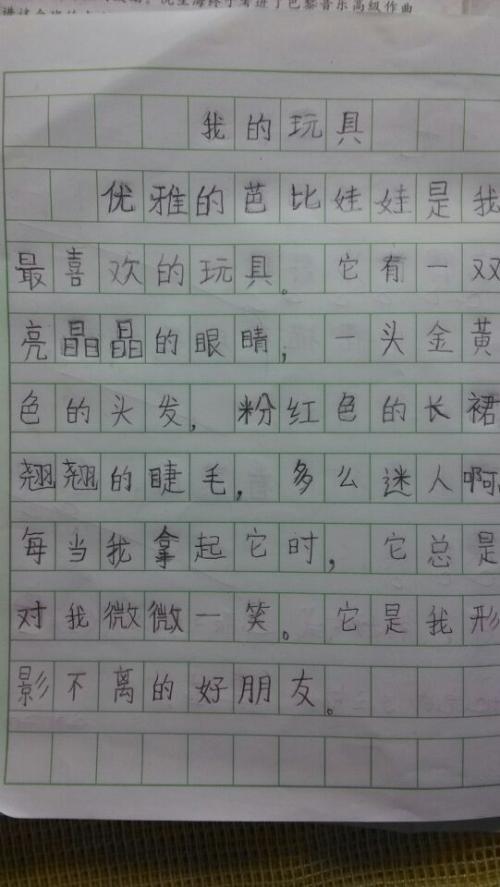 冼星海终于考进了巴黎音乐高级作曲
我的玩具
优雅的芭比娃娃是我
最喜欢的玩具。它有一双
亮晶晶的眼睛，一头金黄
色的头发，粉红色的长裙
翘翘的睫毛，多么迷人啊
每当我拿起它时，它总是
对我微微一笑。它是我形
影不离的好朋友。